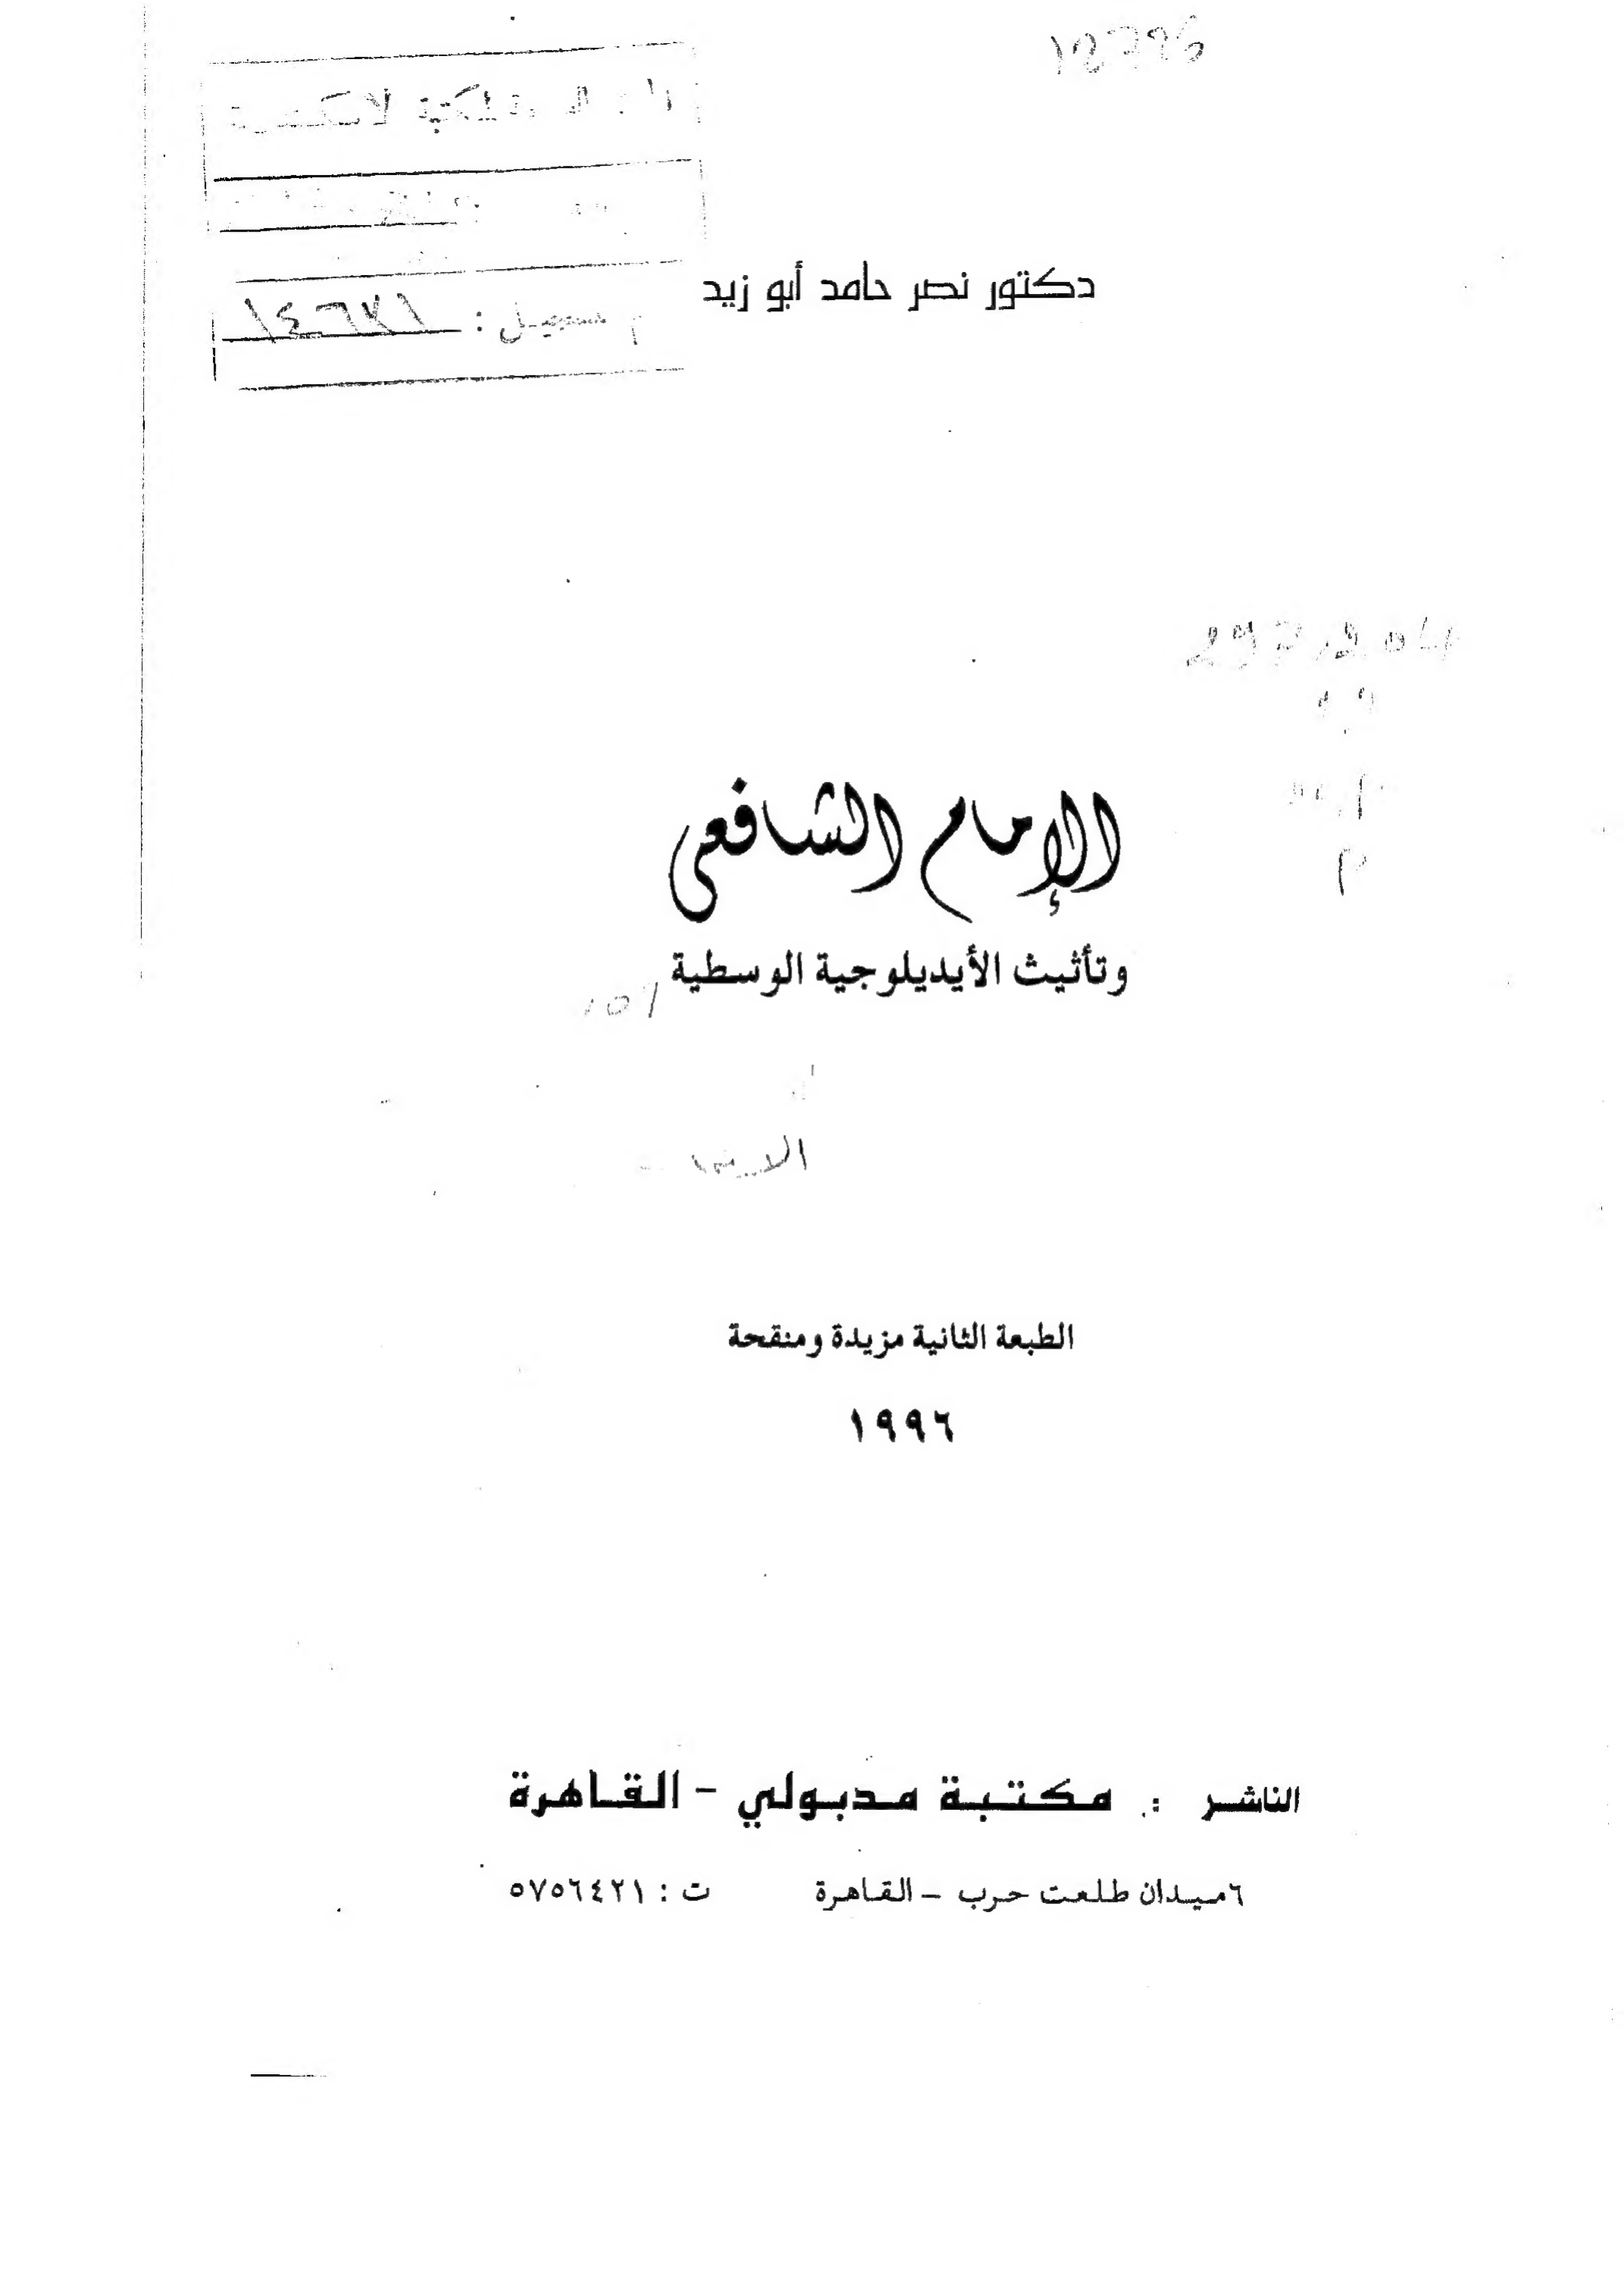 دكتور نصر حامد أبو زيد
الإمام الشافعى
وتأثيث الأيديلوجية الوسطية
الطبعة الثانية مزيدة ومنقحة
١٩٩٦
الناشر : مكتبة مدبولي - القاهرة
٦ميدان طلعت حرب - القاهرة ت : ٥٧٥٦٤٢١